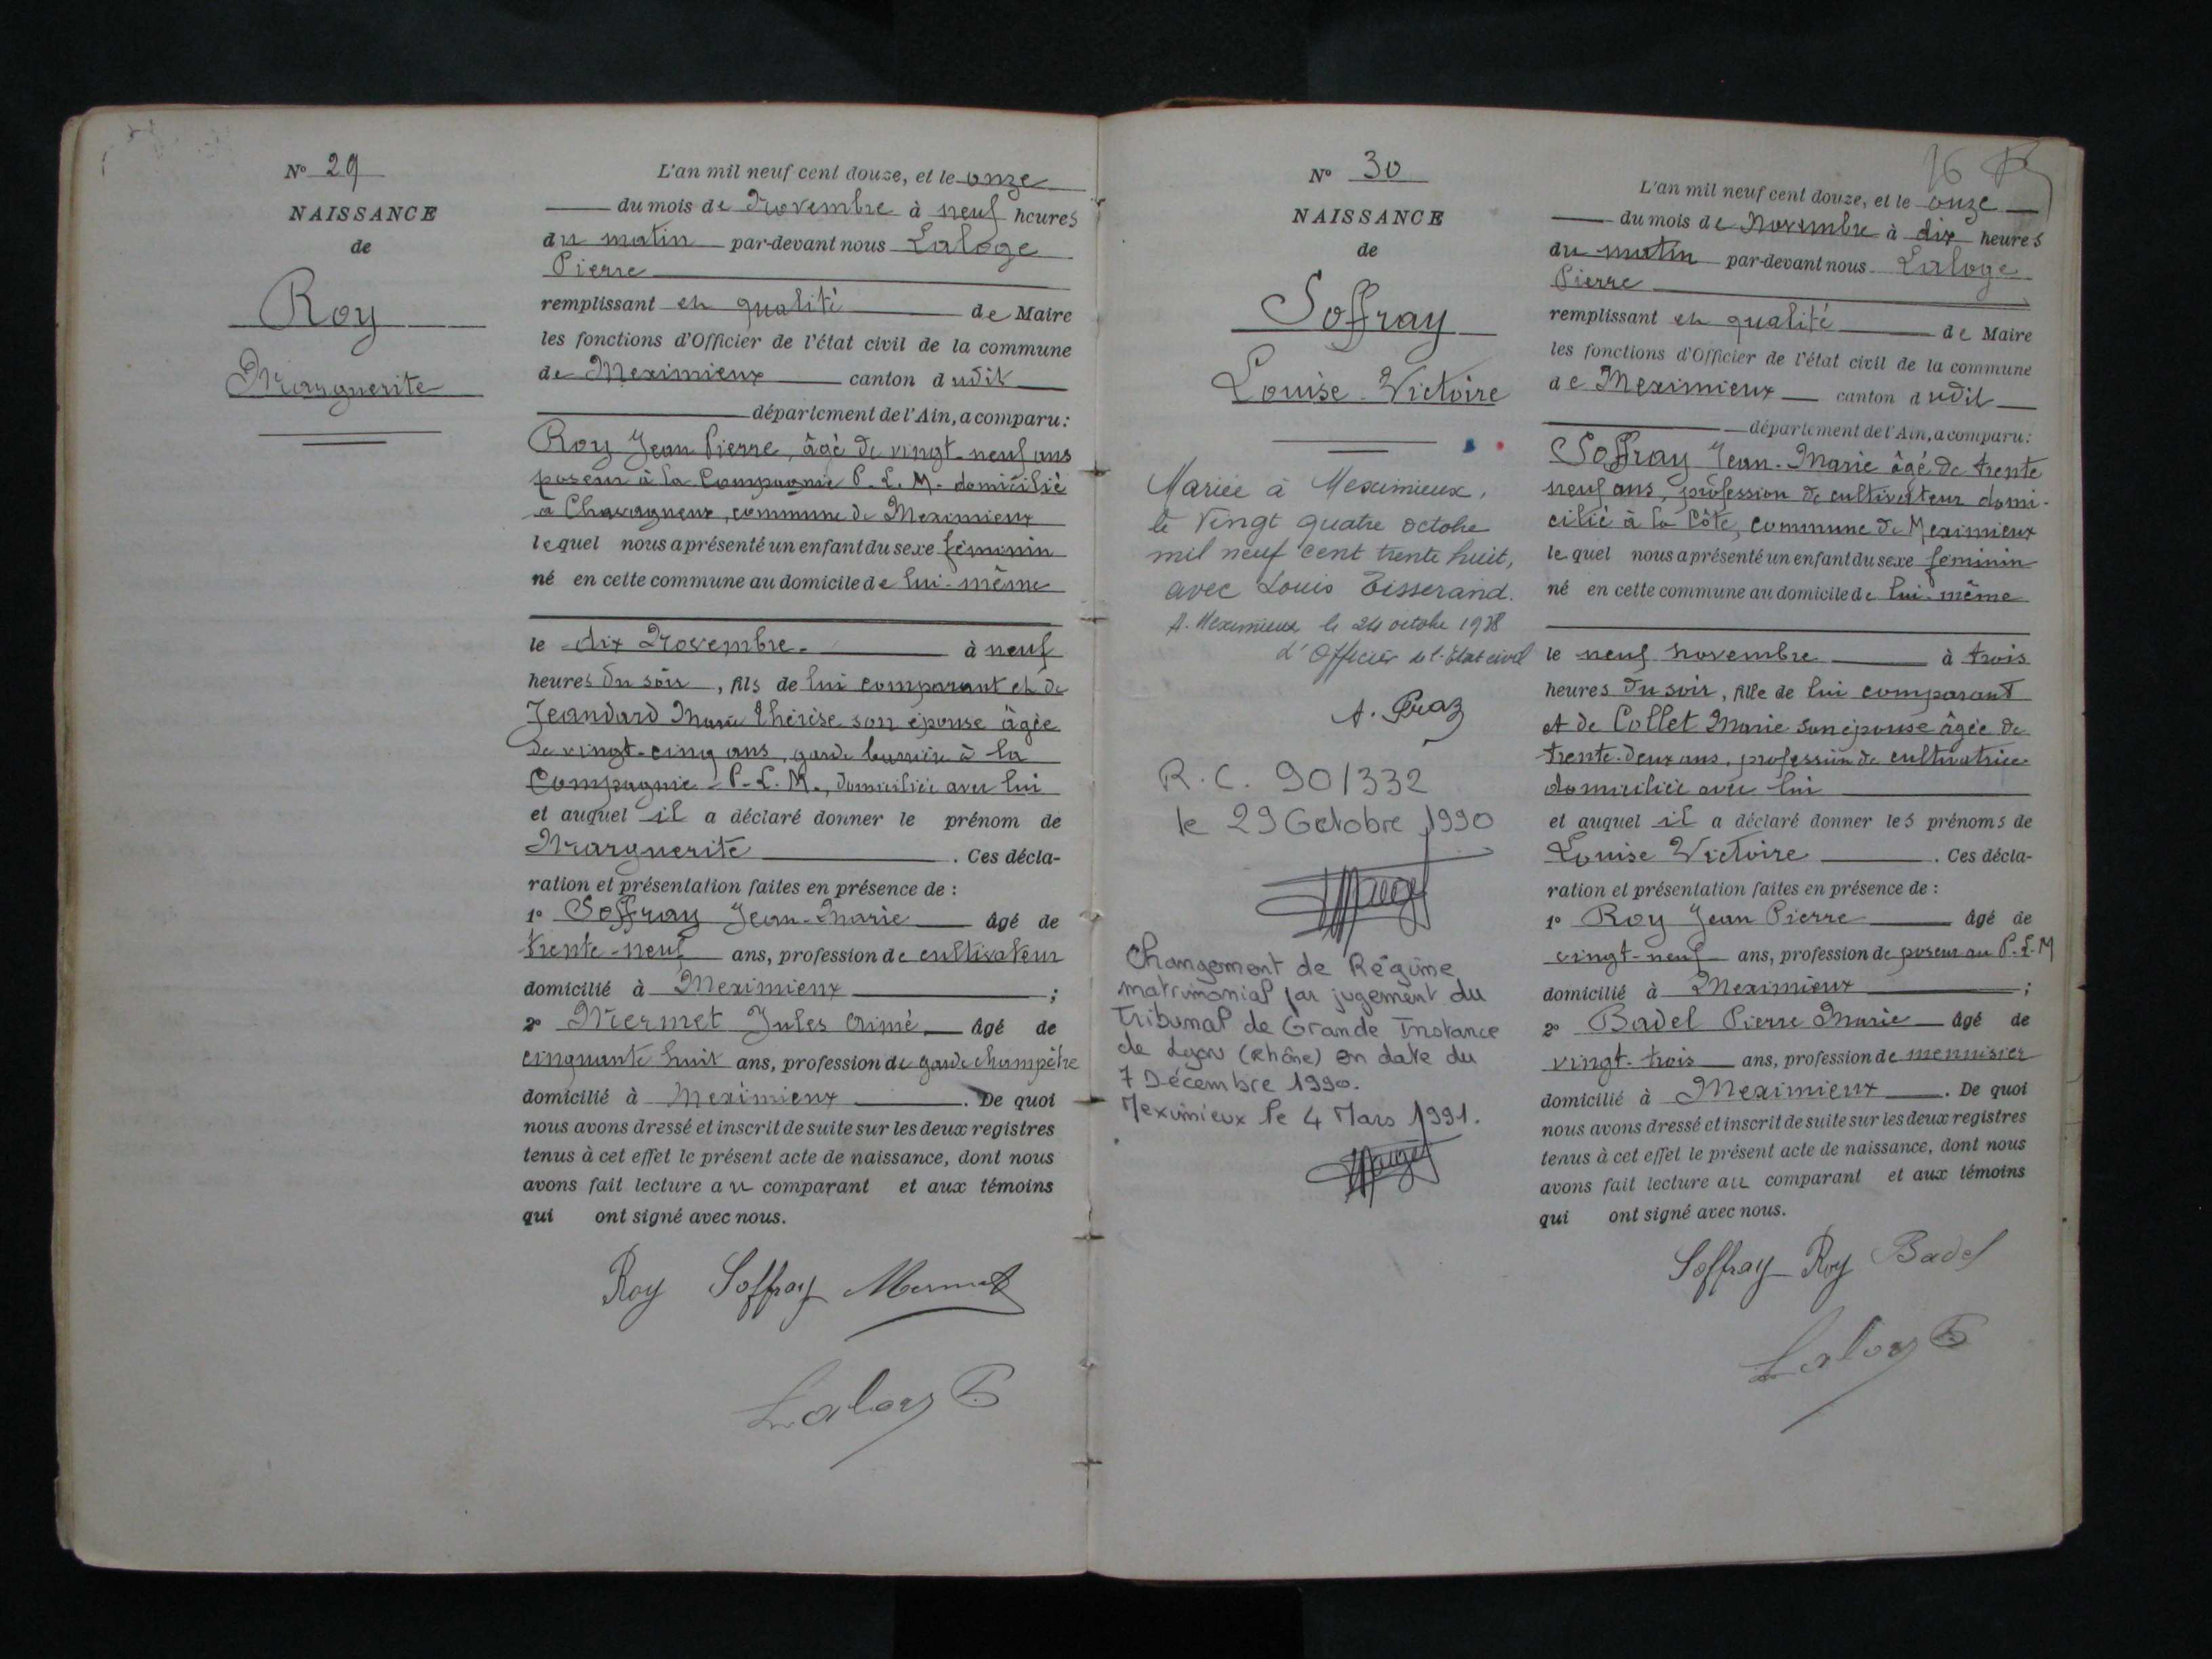 N° 29
NAISSANCE
de
Roy
Marguerite
L'an mil neuf cent douze, et le onze
du mois de Novembre à neuf heures
du matin par-devant nous Laloge
Pierre
remplissant en qualité de Maire
les fonctions d'Officier de l'état civil de la commune
de Meximieux canton dudit
département de l'Ain, a comparu:
Roy Jean Pierre, âgé de vingt-neuf ans
poseur à la Compagnie P. L. M. domicilié
à Chavagneux, commune de Meximieux
lequel nous a présenté un enfant du sexe féminin
né en cette commune au domicile de lui-même
le dix Novembre à neuf
heures du soir, fils de lui comparant et de
Jeandard Marie Thérèse son épouse âgée
de vingt-cinq ans, garde barrière à la
Compagnie P. L. M., domiciliée avec lui
et auquel il a déclaré donner le prénom de
Marguerite. Ces décla-
ration et présentation faites en présence de :
1° Soffray Jean-Marie âgé de
trente-neuf ans, profession de cultivateur
domicilié à Meximieux ;
2° Mermet Jules Aimé âgé de
cinquante huit ans, profession de garde champêtre
domicilié à Meximieux. De quoi
nous avons dressé et inscrit de suite sur les deux registres
tenus à cet effet le présent acte de naissance, dont nous
avons fait lecture au comparant et aux témoins
qui ont signé avec nous.
Roy Soffray Mermet
Laloge P
N° 30
NAISSANCE
de
Soffray
Louise Victoire
Mariée à Meximieux,
le vingt quatre octobre
mil neuf cent trente huit,
avec Louis Tisserand.
A. Meximieux le 24 octobre 1938
L'Officier de l'Etat civil
R.C. 90/332
le 29 Octobre 1990
Changement de Régime
matrimonial par jugement du
Tribunal de Grande Instance
de Lyon (Rhône) en date du
7 Décembre 1990.
Meximieux le 4 Mars 1991.
16
L'an mil neuf cent douze, et le onze
du mois de Novembre à dix heures
du matin par-devant nous Laloge
Pierre
remplissant en qualité de Maire
les fonctions d'Officier de l'état civil de la commune
de Meximieux canton dudit
département de l'Ain, a comparu:
Soffray Jean-Marie âgé de trente
neuf ans, profession de cultivateur domi-
cilié à la Côte, commune de Meximieux
lequel nous a présenté un enfant du sexe féminin
né en cette commune au domicile de lui-même
le neuf novembre à trois
heures du soir, fille de lui comparant
et de Collet Marie son épouse âgée de
trente-deux ans, profession de cultivatrice
domiciliée avec lui
et auquel il a déclaré donner les prénoms de
Louise Victoire. Ces décla-
ration et présentation faites en présence de :
1° Roy Jean Pierre âgé de
vingt-neuf ans, profession de poseur au P.L.M
domicilié à Meximieux ;
2° Badel Pierre Marie âgé de
vingt-trois ans, profession de menuisier
domicilié à Meximieux. De quoi
nous avons dressé et inscrit de suite sur les deux registres
tenus à cet effet le présent acte de naissance, dont nous
avons fait lecture au comparant et aux témoins
qui ont signé avec nous.
Soffray Roy Badel
Laloge P